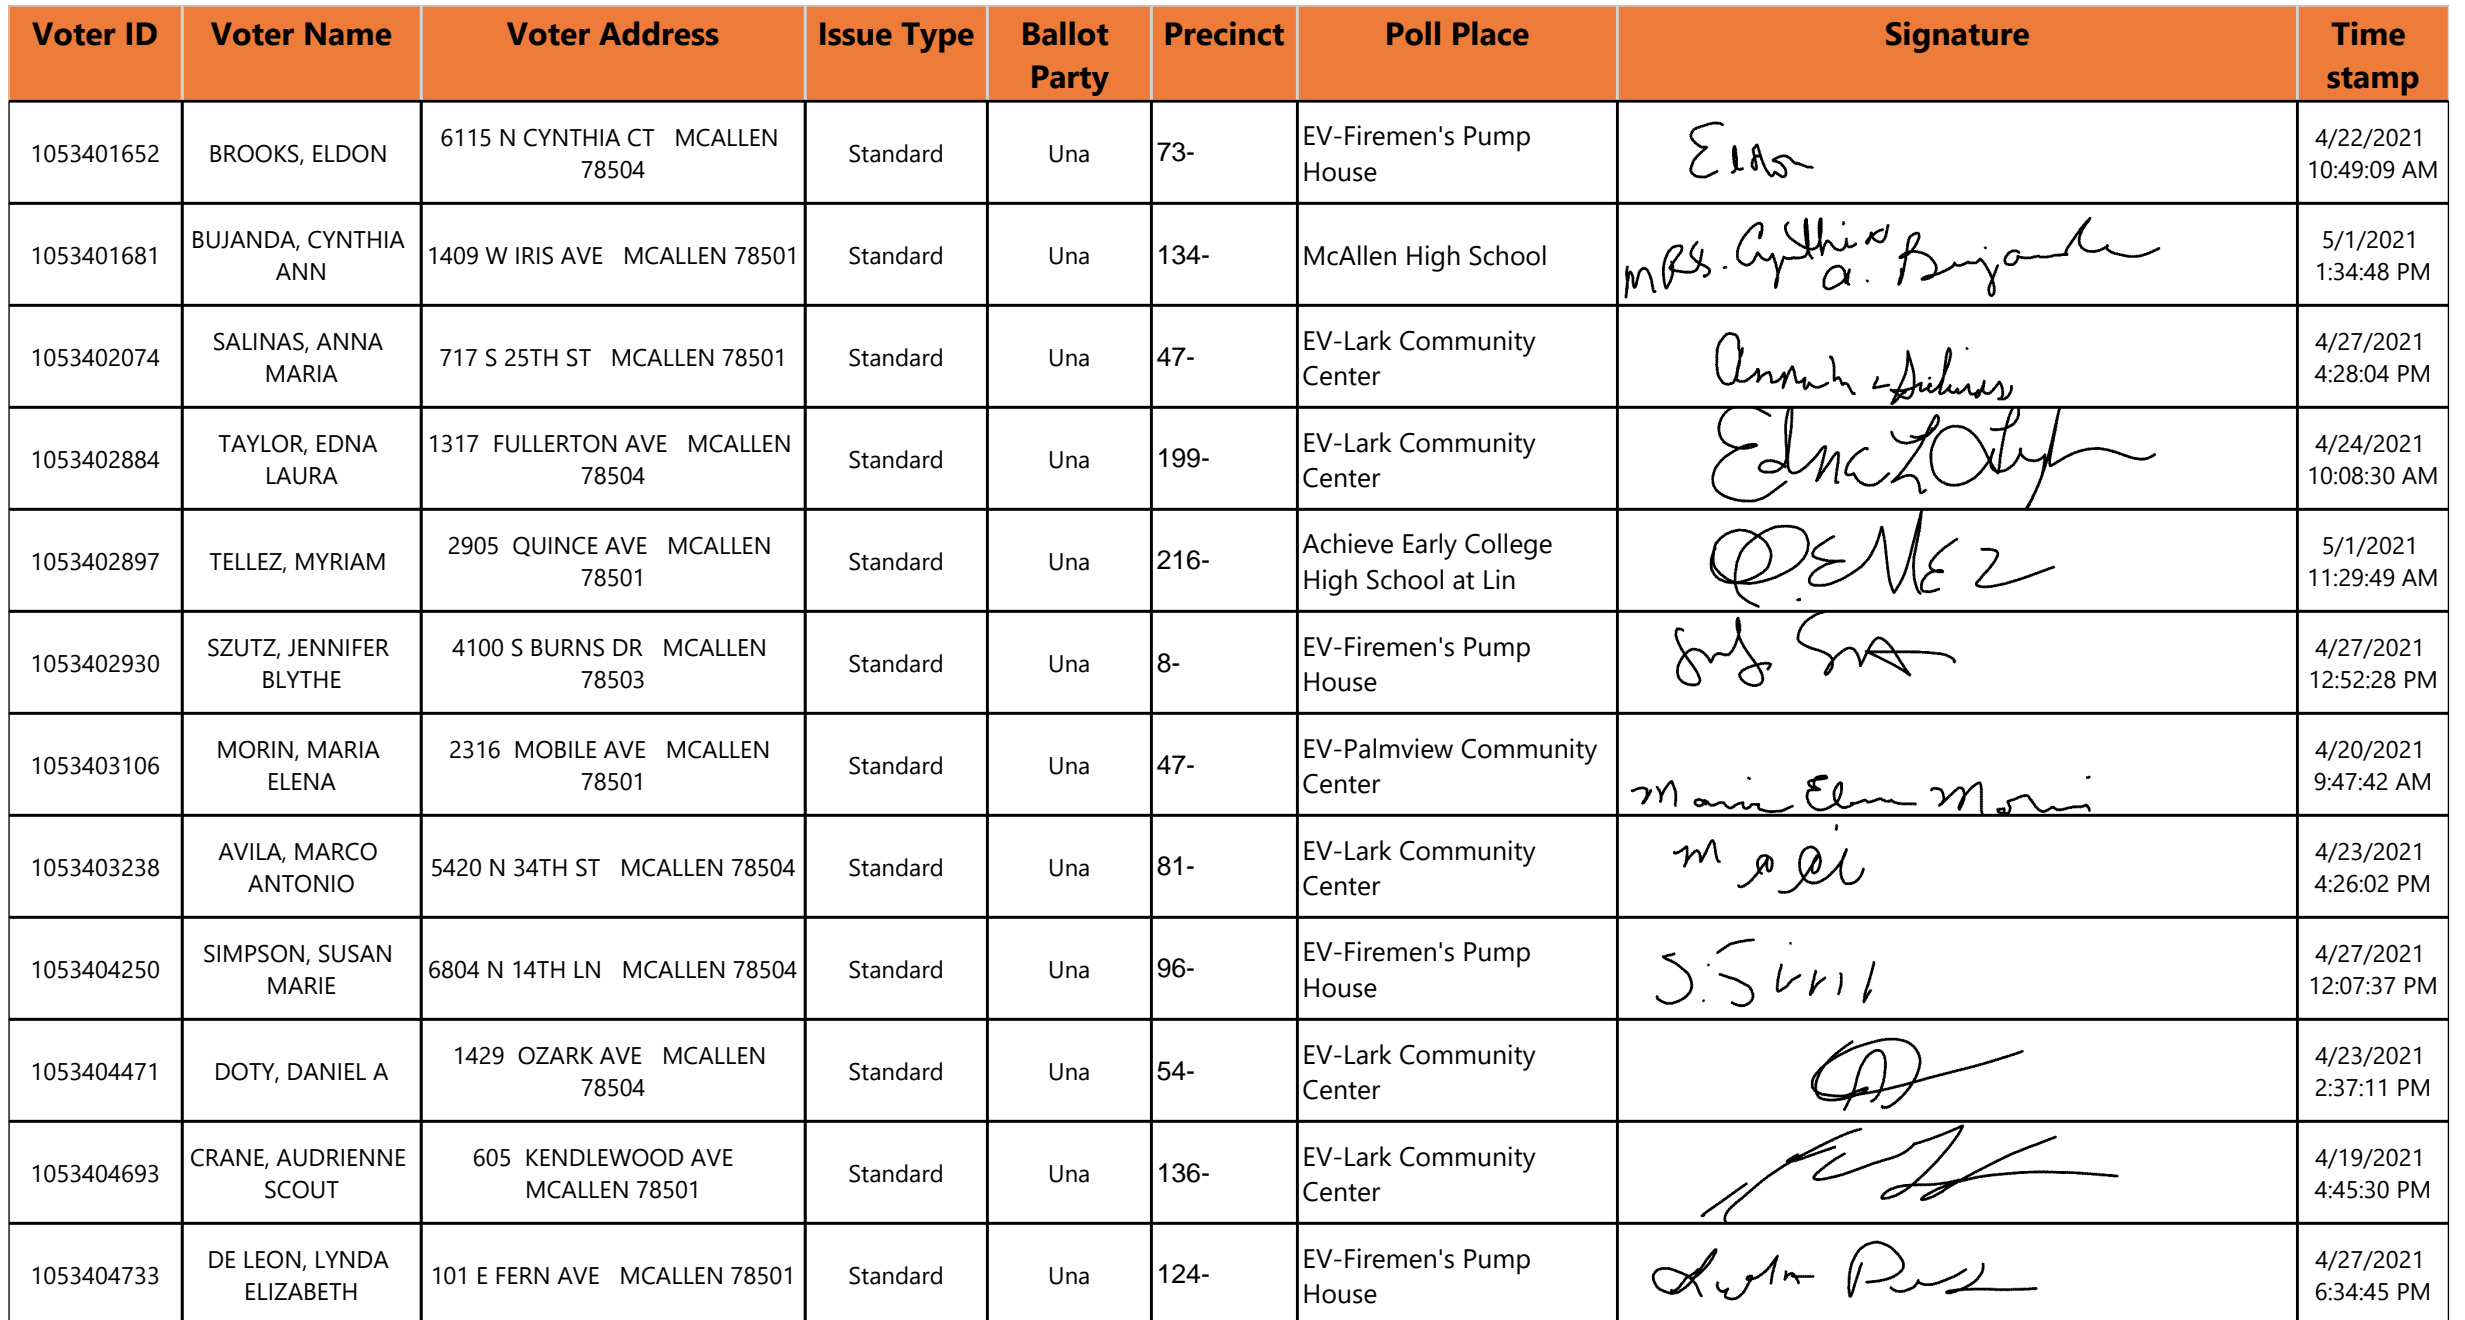 Voter ID Voter Name Voter Address Issue Type Ballot Party Precinct Poll Place Signature Time stamp
1053401652 BROOKS, ELDON 6115 N CYNTHIA CT MCALLEN 78504 Standard Una 73- EV-Firemen's Pump House Eldon 4/22/2021 10:49:09 AM
1053401681 BUJANDA, CYNTHIA ANN 1409 W IRIS AVE MCALLEN 78501 Standard Una 134- McAllen High School MRS. Cynthia a. Bujanda 5/1/2021 1:34:48 PM
1053402074 SALINAS, ANNA MARIA 717 S 25TH ST MCALLEN 78501 Standard Una 47- EV-Lark Community Center 4/27/2021 4:28:04 PM
1053402884 TAYLOR, EDNA LAURA 1317 FULLERTON AVE MCALLEN 78504 Standard Una 199- EV-Lark Community Center Edna L 4/24/2021 10:08:30 AM
1053402897 TELLEZ, MYRIAM 2905 QUINCE AVE MCALLEN 78501 Standard Una 216- Achieve Early College High School at Lin 5/1/2021 11:29:49 AM
1053402930 SZUTZ, JENNIFER BLYTHE 4100 S BURNS DR MCALLEN 78503 Standard Una 8- EV-Firemen's Pump House 4/27/2021 12:52:28 PM
1053403106 MORIN, MARIA ELENA 2316 MOBILE AVE MCALLEN 78501 Standard Una 47- EV-Palmview Community Center Maria Elena Morin 4/20/2021 9:47:42 AM
1053403238 AVILA, MARCO ANTONIO 5420 N 34TH ST MCALLEN 78504 Standard Una 81- EV-Lark Community Center 4/23/2021 4:26:02 PM
1053404250 SIMPSON, SUSAN MARIE 6804 N 14TH LN MCALLEN 78504 Standard Una 96- EV-Firemen's Pump House 4/27/2021 12:07:37 PM
1053404471 DOTY, DANIEL A 1429 OZARK AVE MCALLEN 78504 Standard Una 54- EV-Lark Community Center 4/23/2021 2:37:11 PM
1053404693 CRANE, AUDRIENNE SCOUT 605 KENDLEWOOD AVE MCALLEN 78501 Standard Una 136- EV-Lark Community Center 4/19/2021 4:45:30 PM
1053404733 DE LEON, LYNDA ELIZABETH 101 E FERN AVE MCALLEN 78501 Standard Una 124- EV-Firemen's Pump House 4/27/2021 6:34:45 PM